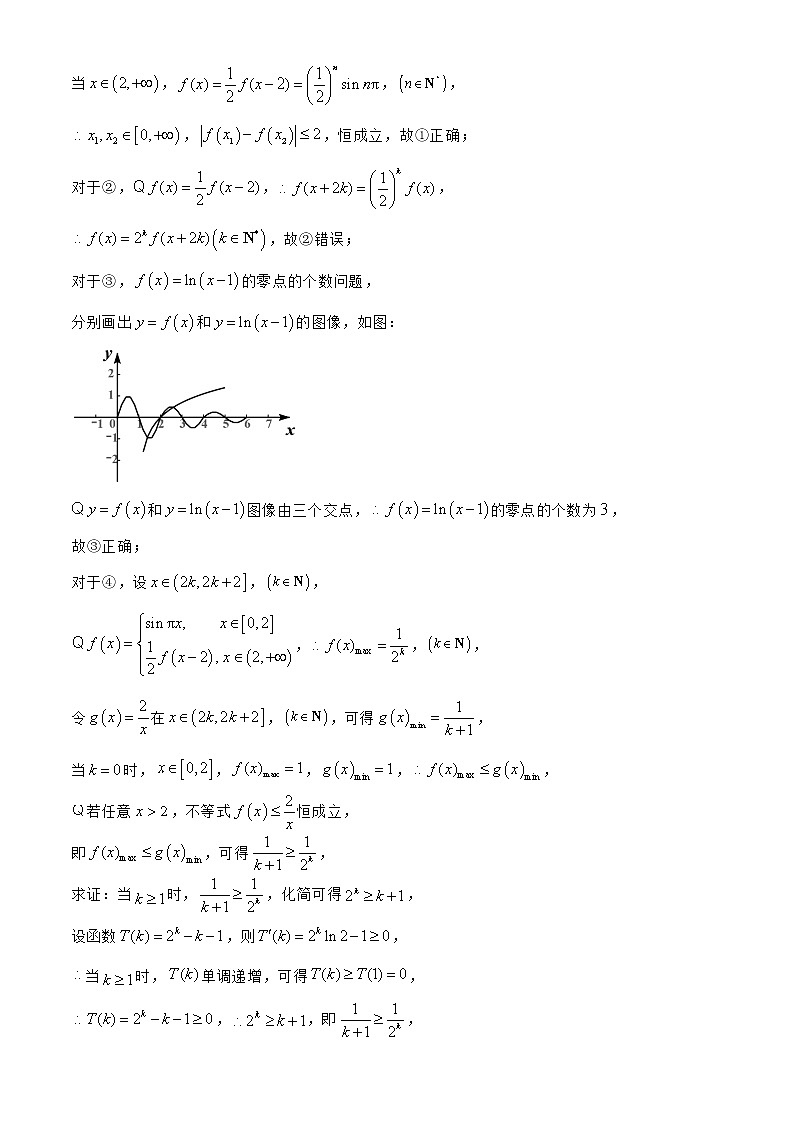 当 x∈(2,+∞)，f(x)=\frac{1}{2}f(x−2)=\left(\frac{1}{2}\right)^n sin nπ，(n∈N*)，
∴ x₁,x₂∈[0,+∞)，|f(x₁)−f(x₂)|≤2，恒成立，故①正确；
对于②，Q f(x)=\frac{1}{2}f(x−2)，∴ f(x+2k)=\left(\frac{1}{2}\right)^k f(x)，
∴ f(x)=2^k f(x+2k)(k∈N*)，故②错误；
对于③，f(x)=ln(x−1)的零点的个数问题，
分别画出 y=f(x)和 y=ln(x−1)的图像，如图：
y
2
1
−1 0 1 2 3 4 5 6 7
x
−1
−2
Q y=f(x)和 y=ln(x−1)图像由三个交点，∴ f(x)=ln(x−1)的零点的个数为 3，
故③正确；
对于④，设 x∈(2k,2k+2]，(k∈N)，
Q f(x)=\begin{cases} sin πx, & x∈[0,2] \\ \frac{1}{2}f(x−2), & x∈(2,+∞) \end{cases}，∴ f(x)_{max}=\frac{1}{2^k}，(k∈N)，
令 g(x)=\frac{2}{x}在 x∈(2k,2k+2]，(k∈N)，可得 g(x)_{min}=\frac{1}{k+1}，
当 k=0时，x∈[0,2]，f(x)_{max}=1，g(x)_{min}=1，∴ f(x)_{max}≤g(x)_{min}，
Q若任意 x>2，不等式 f(x)≤\frac{2}{x}恒成立，
即 f(x)_{max}≤g(x)_{min}，可得\frac{1}{k+1}≥\frac{1}{2^k}，
求证：当 k≥1时，\frac{1}{k+1}≥\frac{1}{2^k}，化简可得 2^k≥k+1，
设函数 T(k)=2^k−k−1，则 T′(k)=2^k ln 2−1≥0，
∴当 k≥1时，T(k)单调递增，可得 T(k)≥T(1)=0，
∴T(k)=2^k−k−1≥0，∴2^k≥k+1，即\frac{1}{k+1}≥\frac{1}{2^k}，